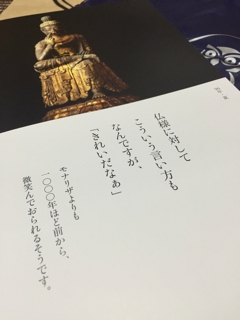 仏様に対して
こういう言い方も
なんですが、
「きれいだなぁ」
モナリザよりも
一〇〇〇年ほど前から、
微笑んでおられるそうです。